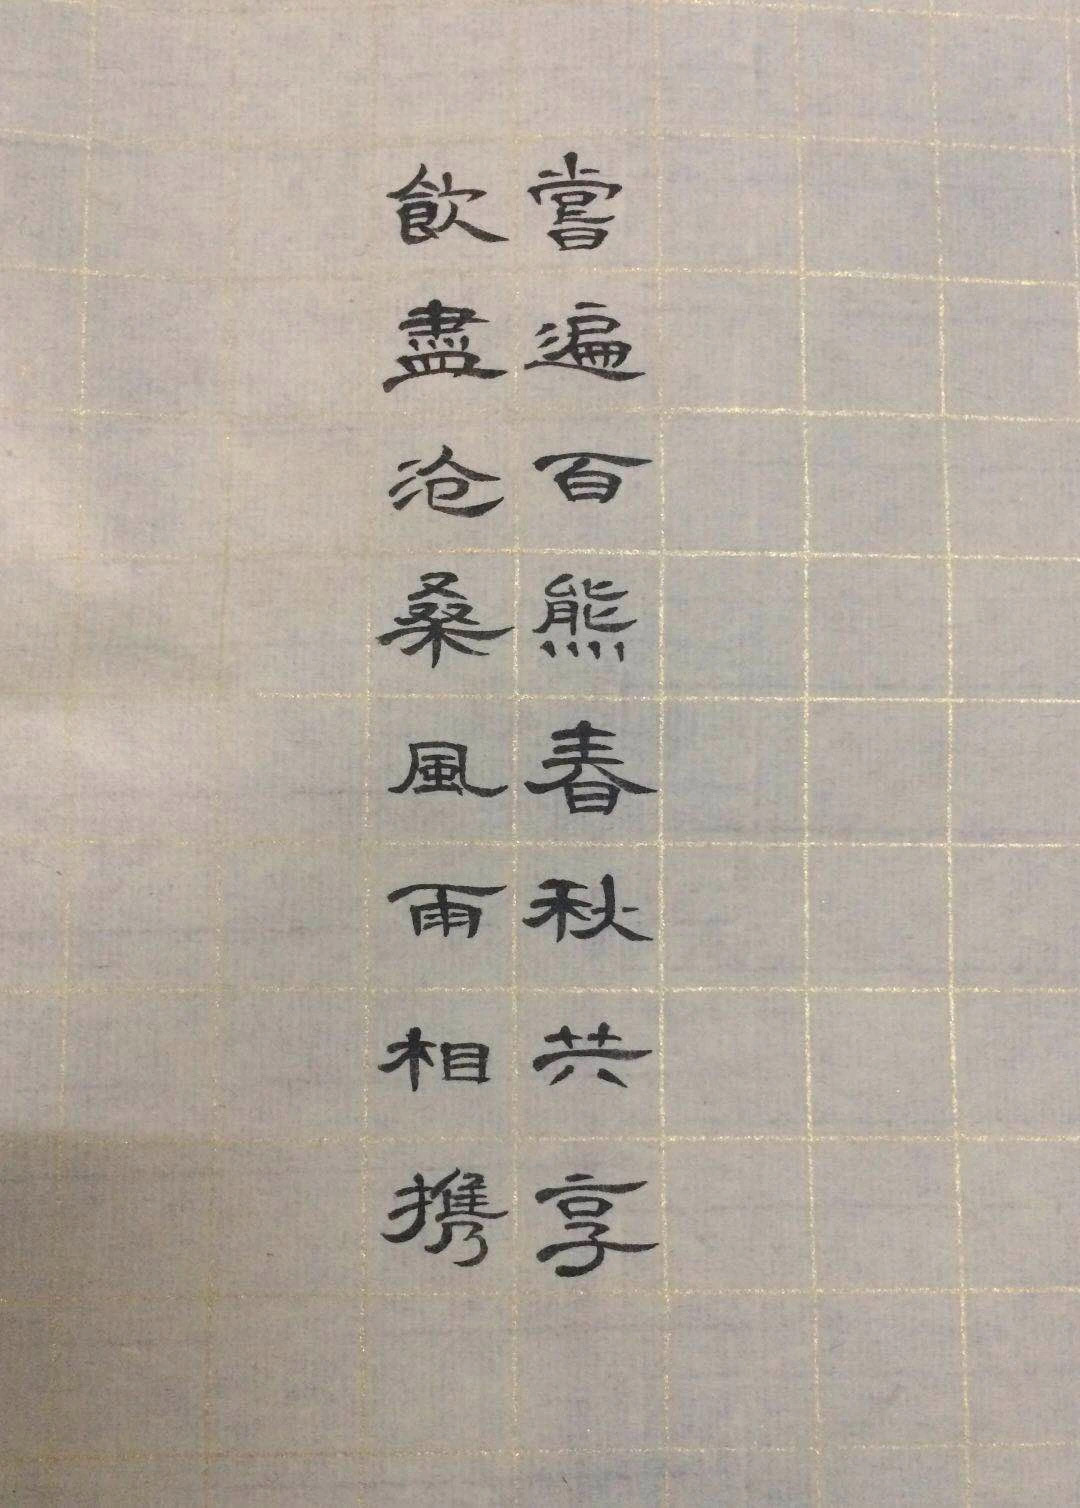 嘗遍百熊春秋共享
飲盡沧桑風雨相携